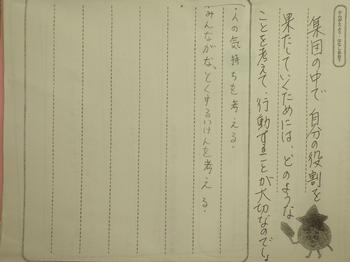 集団の中で自分の役割を
果たしていくためには、どのような
ことを考えて、行動することが大切なのでしょ
・人の気持ちを考える。
・みんながな、とくするいけんを考える。